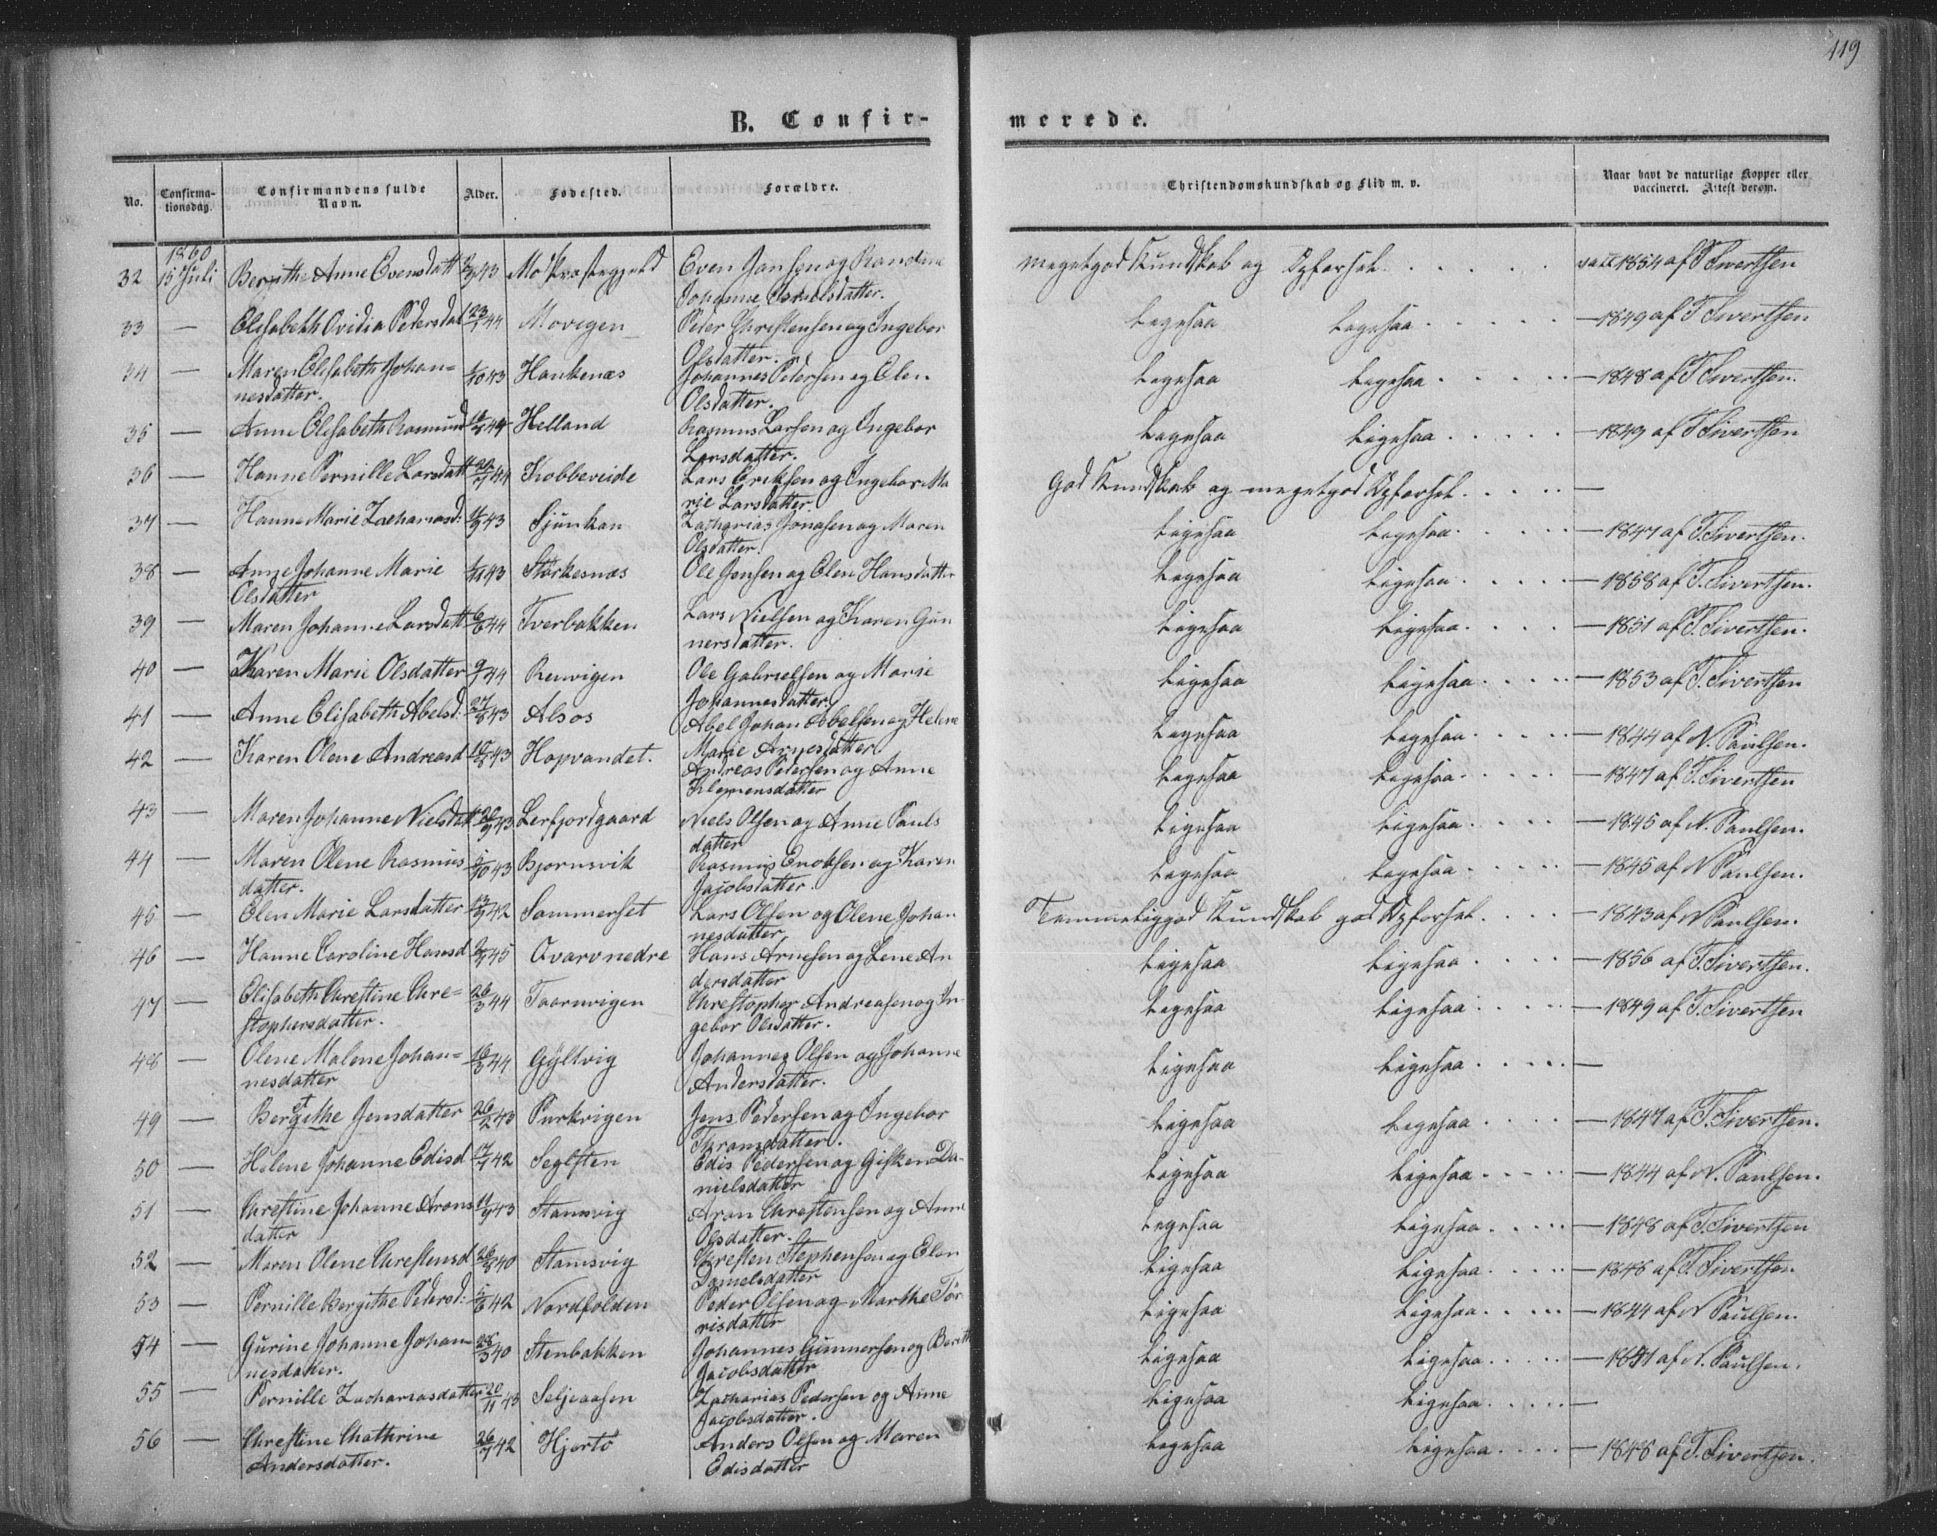 119
B. Confirmerede.
No. Confirmationsdag. Confirmandens fulde Navn. Alder. Fødested. Forældre. Christendomskundskab og Flid m. v. Naar havt de naturlige Kopper eller vaccineret. Attest derom.
1860
32 15 Juli Berithe Anne Evensdatt 43 Mo Præstegjeld Even Jonsen og Randine Johanne Israelsdatter. Megetgod Kundskab og Opførsel. vacc 1854 af T. Sivertsen
33 — Elisabeth Ovidia Pedersdat 23/1 44 Movigen Peder Christensen og Ingebor Olsdatter. Ligesaa Ligesaa — 1849 af T. Sivertsen
34 — Maren Elisabeth Johannesdatter. /10 43 Hankenæs Johannes Pedersen og Elen Olsdatter. Ligesaa Ligesaa — 1848 af T. Sivertsen.
35 — Anne Elisabeth Rasmusd 44 Helland Rasmus Larsen og Ingebor Larsdatter. Ligesaa Ligesaa — 1849 af T. Sivertsen
36 — Hanne Pernille Larsdatt 44 Kobbereide Lars Eriksen og Ingebor Marie Larsdatter. God Kundskab og megetgod Opførsel. —
37 — Hanne Marie Zachariasd: 43 Sjunkan Zacharias Jonasen og Maren Olsdatter. Ligesaa Ligesaa — 1847 af T. Sivertsen.
38 — Anne Johanne Marie Olsdatter /11 43 Størkesnæs Ole Jensen og Elen Hansdatter Ligesaa Ligesaa — 1858 af T. Sivertsen.
39 — Maren Johanne Larsdatt 44 Tverbakken Lars Nielsen og Karen Gunnersdatter. Ligesaa Ligesaa — 1851 af T. Sivertsen.
40 — Karen Marie Olsdatter 9/ 44 Renvigen Ole Gabrielsen og Marie Johannesdatter. Ligesaa Ligesaa — 1853 af T. Sivertsen
41 — Anne Elisabeth Abelsd: 27/8 43 Alsos Abel Johan Abelsen og Helene Marie Arnesdatter Ligesaa Ligesaa — 1844 af N. Paulsen.
42 — Karen Olene Andreasd 43 Hopvandet. Andreas Pedersen og Anne Klemensdatter Ligesaa Ligesaa — 1847 af T. Sivertsen
43 — Maren Johanne Nielsdatt 43 Lerfjordgaard Niels Olsen og Anne Paulsdatter Ligesaa Ligesaa — 1845 af N. Paulsen.
44 — Maren Olene Rasmusdatter. /10 43 Bjørnsvik Rasmus Enoksen og Karen Jacobsdatter. Ligesaa Ligesaa — 1845 af N Paulsen.
45 — Elen Marie Larsdatter 13/ 42 Sommerset Lars Olsen og Olene Johannesdatter Temmeliggod Kundskab god Opførsel. — 1843 af N Paulsen.
46 — Hanne Caroline Hansd 45 Qvarvnedre Hans Arnesen og Lene Andersdatter Ligesaa Ligesaa — 1856 af T. Sivertsen.
47 — Elisabeth Christine Christophersdatter. 26/3 44 Taarnvigen Christopher Andreasen og Ingebor Olsdatter. Ligesaa Ligesaa — 1849 af T. Sivertsen
48 — Olene Malene Johannesdatter 44 Gyltvig Johannes Olsen og Johanne Andersdatter. Ligesaa Ligesaa —
49 — Bergithe Jensdatter 26/2 43 Purkvigen Jens Pedersen og Ingebor Transdatter. Ligesaa Ligesaa — 1847 af T. Sivertsen.
50 — Helene Johanne Edisd 42 Seglsten Edis Pedersen og Gisken Danielsdatter Ligesaa Ligesaa — 1844 af N. Paulsen.
51 — Christine Johanne Aronsdatter 43 Stamsvig Aron Christensen og Anne Olsdatter. Ligesaa Ligesaa — 1848 af T. Sivertsen
52 — Maren Olene Christensd 40 Stamsvig Christen Stephensen og Elen Danielsdatter Ligesaa Ligesaa — 1848 af T. Sivertsen
53 — Pernille Bergithe Pedersd: 42 Nordfolden Peder Olsen og Marthe Tørrisdatter Ligesaa Ligesaa — 1844 af N Paulsen.
54 — Gurine Johanne Johannesdatter. 40 Stenbakken Johannes Gunnersen og Berith Jacobsdatter Ligesaa Ligesaa — 1841 af N. Paulsen.
55 — Pernille Zachariasdatter 20/11 43 Seljeaasen Zacharias Pedersen og Anne Jacobsdatter. Ligesaa Ligesaa —
56 — Christine Chathrine Andersdatter. 26/ 42 Hjertø Anders Olsen og Maren Edisdatter Ligesaa Ligesaa — 1848 af T. Sivertsen.